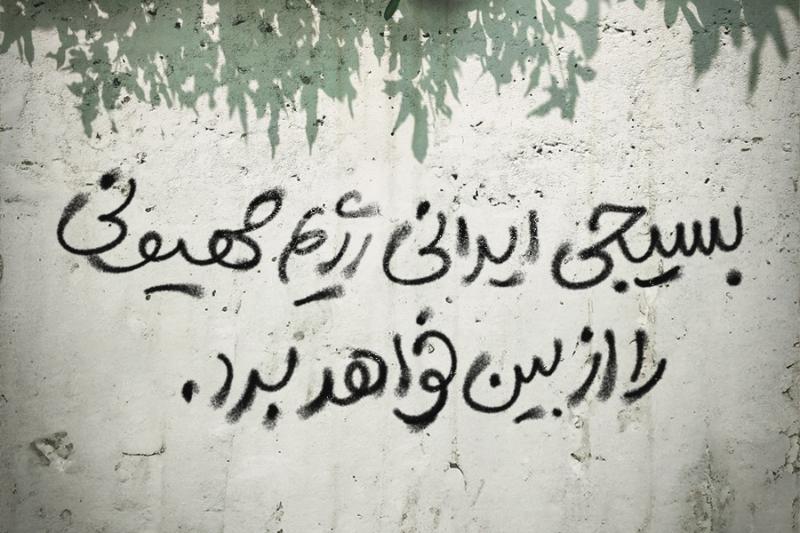 بسیجی ایرانی رژیم صهیونی
را از بین خواهد برد.